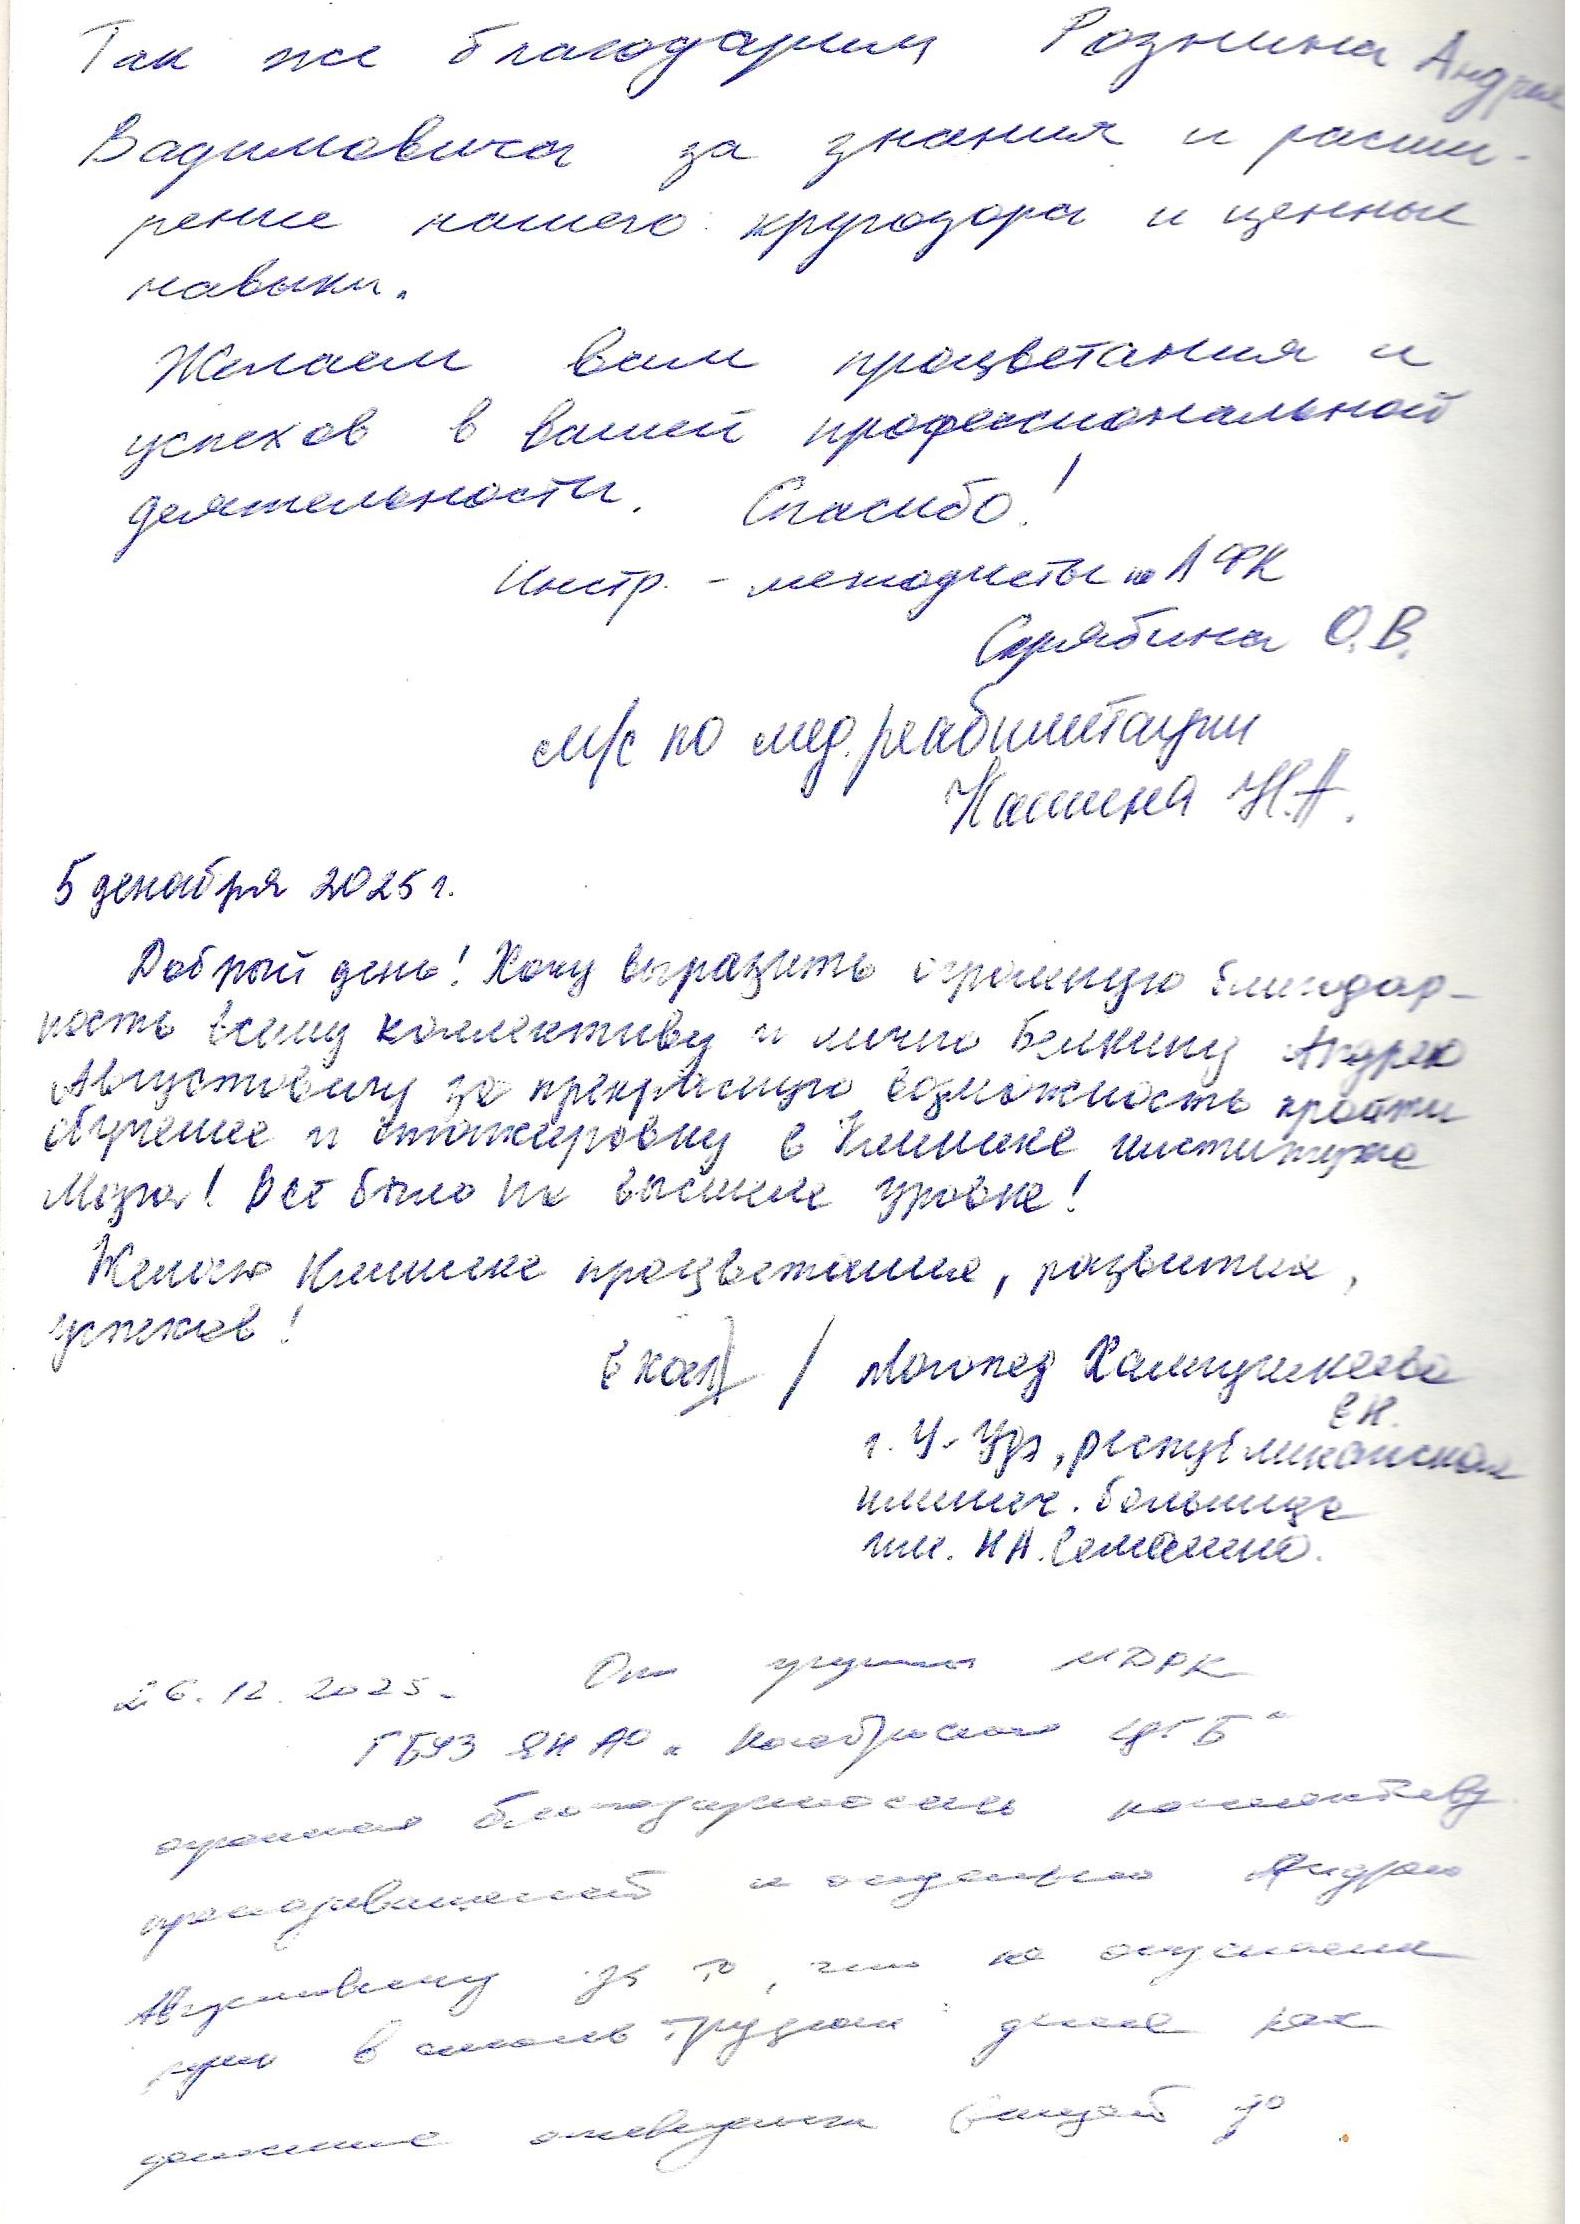 Так же благодарим Рознина Андрея
Вадимовича за знания и расши-
рение нашего кругозора и ценные
навыки.
Желаем вам процветания и
успехов в вашей профессиональной
деятельности. Спасибо!
Инстр. - методисты по АФК
Скрябина О.В.
м/с по мед. реабилитации
Кашина Н.А.
5 декабря 2025 г.
Добрый день! Хочу выразить огромную благодар-
ность всему коллективу и лично Белкину Андрею
Августовичу за прекрасную возможность пройти
обучение и стажировку в Клинике института
Мозга! Всё было на высшем уровне!
Желаю Клинике процветания, развития,
успехов!
/ Логопед
Е.Н.
г. У-Удэ, республиканская
клинич. больница
им. Н.А. Семашко.
26.12.2025. От группы МДРК
ГБУЗ ЯНАО "Ноябрьская ЦГБ"
огромная благодарность коллективу
и отдельно Андрею
Августовичу за то, что не опускаете
руки в столь трудном деле как